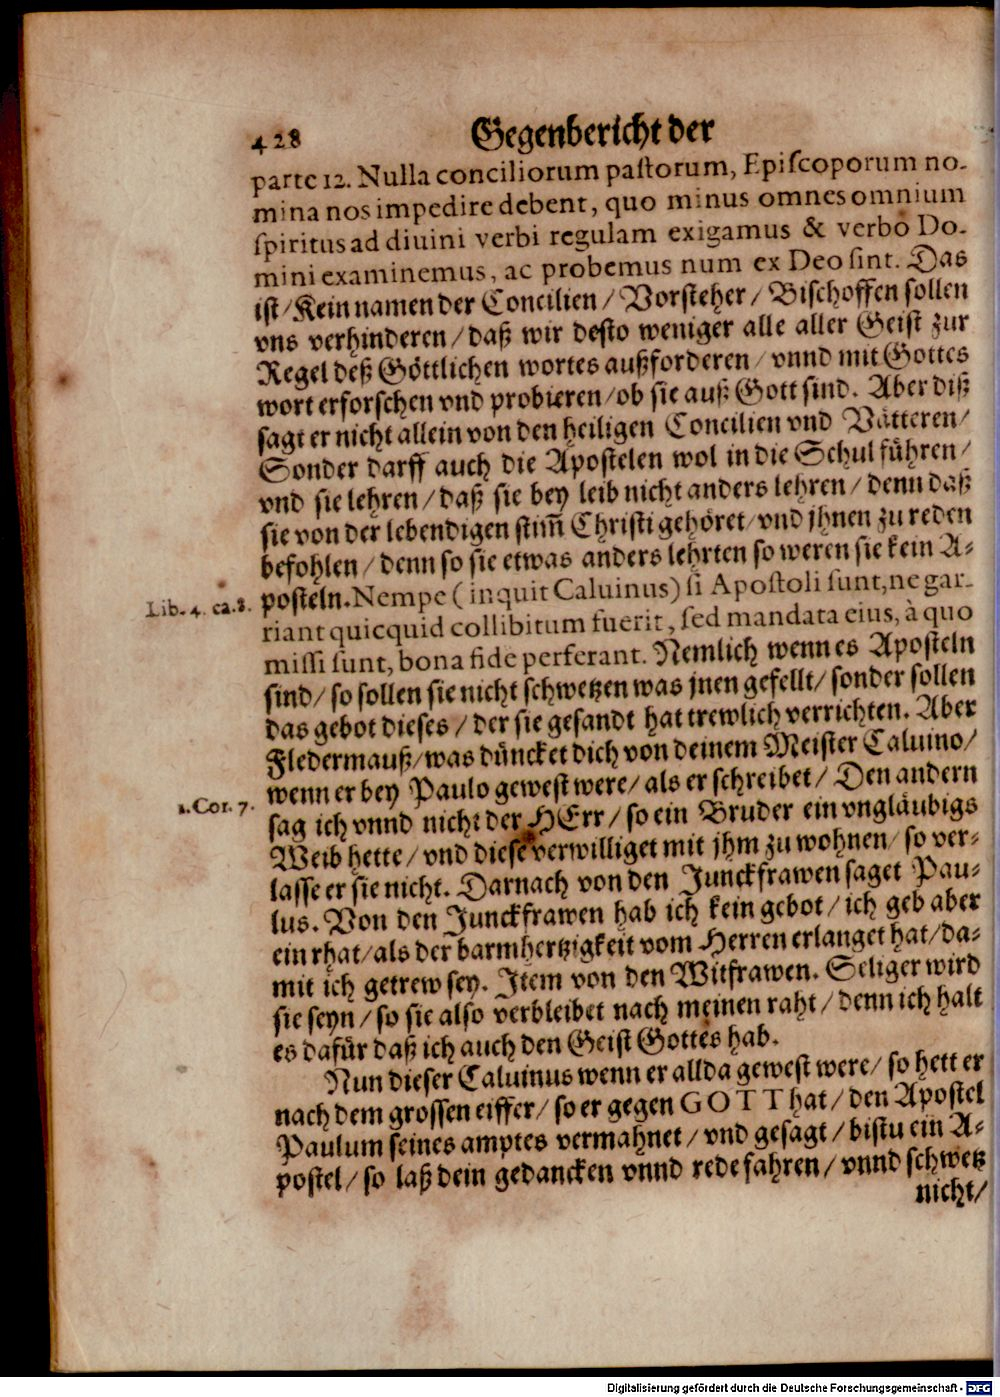 428 Gegenbericht der
parte 12. Nulla conciliorum pastorum, Episcoporum no-
mina nos impedire debent, quo minus omnes omnium
spiritus ad diuini verbi regulam exigamus & verbo Do-
mini examinemus, ac probemus num ex Deo sint. Das
ist/ Kein namen der Concilien/ Vorsteher/ Bischoffen sollen
vns verhinderen/ daß wir desto weniger alle aller Geist zur
Regel deß Göttlichen wortes außforderen/ vnnd mit Gottes
wort erforschen vnd probieren/ ob sie auß Gott sind. Aber diß
sagt er nicht allein von den heiligen Concilien vnd Vätteren/
Sonder darff auch die Apostelen wol in die Schul führen/
vnd sie lehren/ daß sie bey leib nicht anders lehren/ denn daß
sie von der lebendigen stim̃ Christi gehöret/ vnd jhnen zu reden
befohlen/ denn so sie etwas anders lehrten so weren sie kein A-
Lib. 4. ca. 8. posteln. Nempe (inquit Caluinus) si Apostoli sunt, ne gar-
riant quicquid collibitum fuerit, sed mandata eius, à quo
missi sunt, bona fide perferant. Nemlich wenn es Aposteln
sind/ so sollen sie nicht schwetzen was jnen gefellt/ sonder sollen
das gebot dieses/ der sie gesandt hat trewlich verrichten. Aber
Fledermauß/ was düncket dich von deinem Meister Caluino/
wenn er bey Paulo gewest were/ als er schreibet/ Den andern
1. Cor. 7. sag ich vnnd nicht der HErr/ so ein Bruder ein vngläubigs
Weib hette/ vnd diese verwilliget mit jhm zu wohnen/ so ver-
lasse er sie nicht. Darnach von den Junckfrawen saget Pau-
lus. Von den Junckfrawen hab ich kein gebot/ ich geb aber
ein rhat/ als der barmhertzigkeit vom Herren erlanget hat/ da-
mit ich getrew sey. Item von den Witfrawen. Seliger wird
sie seyn/ so sie also verbleibet nach meinen raht/ denn ich halt
es dafür daß ich auch den Geist Gottes hab.
Nun dieser Caluinus wenn er allda gewest were/ so hett er
nach dem grossen eiffer/ so er gegen GOTT hat/ den Apostel
Paulum seines amptes vermahnet/ vnd gesagt/ bistu ein A-
postel/ so laß dein gedancken vnnd rede fahren/ vnnd schwetz
nicht/
Digitalisierung gefördert durch die Deutsche Forschungsgemeinschaft - DFG